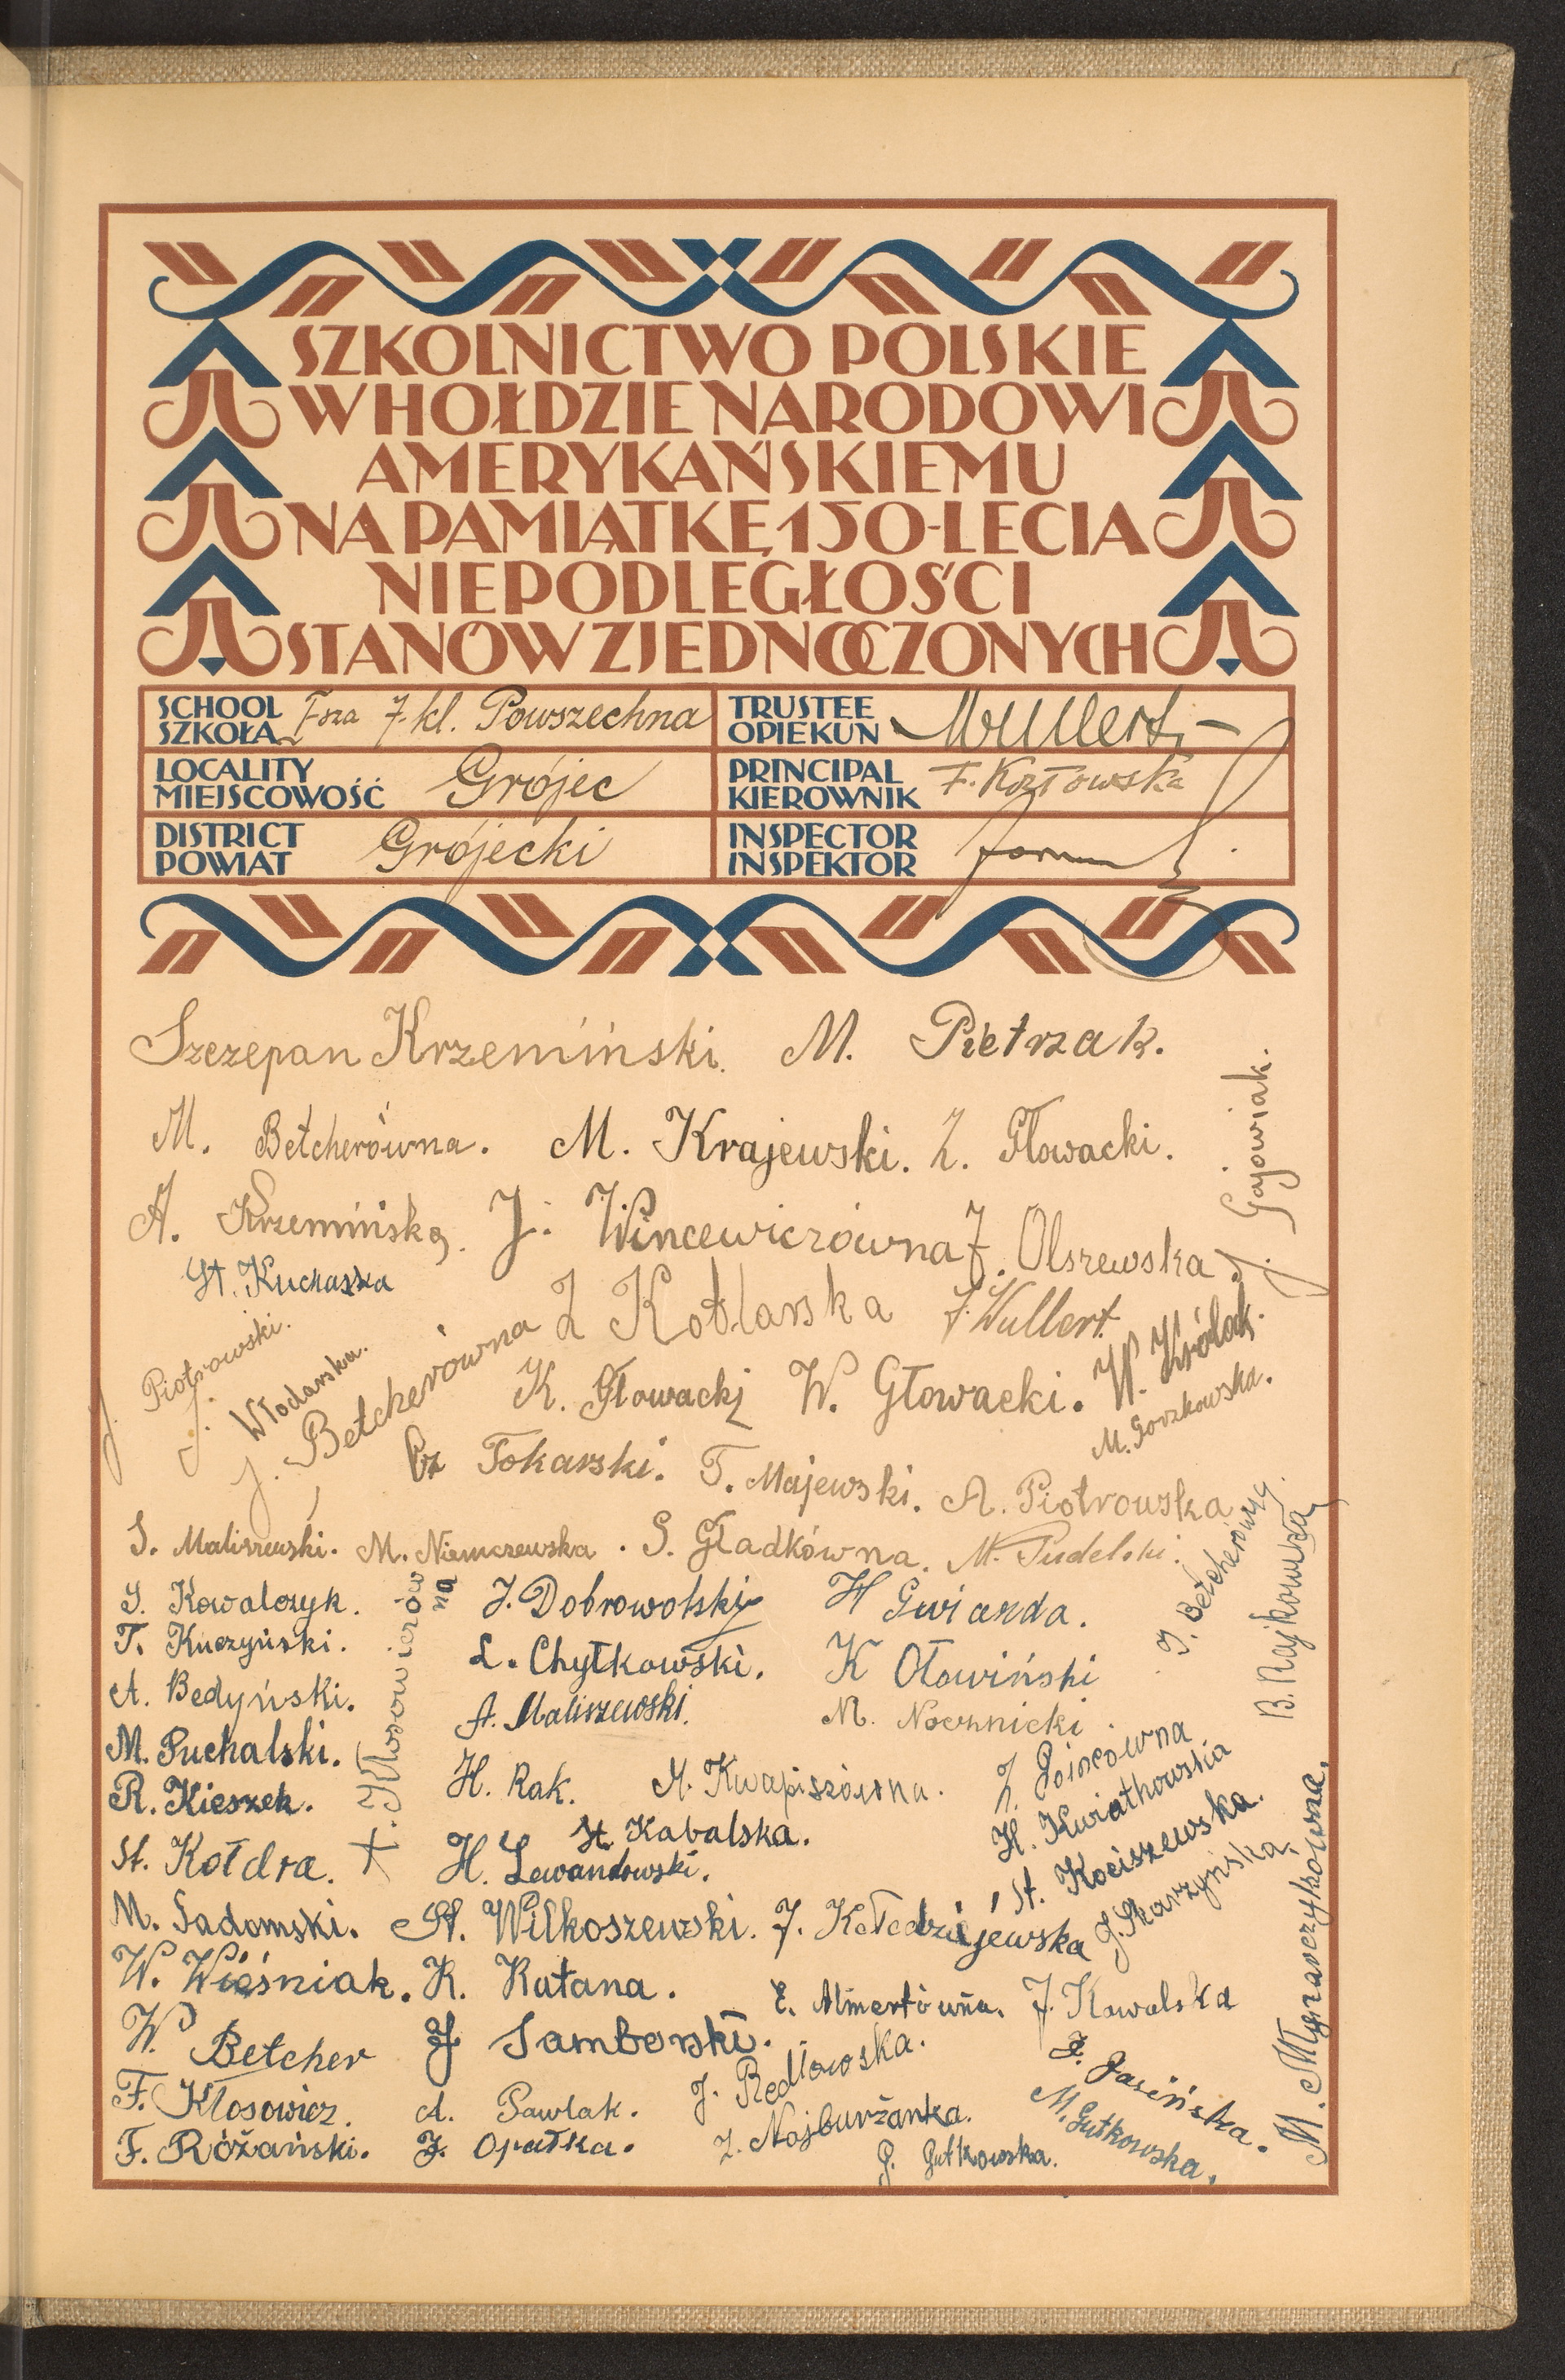 SZKOLNICTWO POLSKIE
W HOŁDZIE NARODOWI
AMERYKAŃSKIEMU
NA PAMIĄTKĘ 150-LECIA
NIEPODLEGŁOŚCI
STANÓW ZJEDNOCZONYCH
SCHOOL
SZKOŁA
I-sza 7-kl. Powszechna
TRUSTEE
OPIEKUN
Wullert
LOCALITY
MIEJSCOWOŚĆ
Grójec
PRINCIPAL
KIEROWNIK
F. Kozłowska
DISTRICT
POWIAT
Grójecki
INSPECTOR
INSPEKTOR
Szczepan Krzemiński. M. Pietrzak.
M. Betcherówna. M. Krajewski. Z. Głowacki.
J. Gajowiak.
A. Krzemińska. J. Wincewiczówna J. Olszewska.
St. Kucharska
Z Kotlarska J. Wullert.
J. Piotrowski.
J. Włodarska.
J. Betcherówna
K. Głowacki W. Głowacki. W. Królak.
M. Gorzkowska.
Cz Tokarski. T. Majewski. A. Piotrowska
S. Maliszewski. M. Niemczewska. S. Gładkówna. M. Pudelski.
J. Betcherówna.
B. Rajkowska
S. Kowalczyk. J. Dobrowolski H Gwiazda.
T. Kuczyński. L. Chytkowski. K Oławiński
A. Bedyński. A. Maliszewski. M. Nocznicki.
M. Puchalski.
R. Kieszek. H. Rak. M. Kwapiszówna.
K. Kłosowiczówna
St. Kabalska.
St. Kołdra. H. Lewandowski.
H. Kwiatkowska
St. Kociszewska.
J. Skarzyńska
M. Sadomski. St. Wilkoszewski. J. Kołodziejewska
W. Wieśniak. K. Katana. E. Almertówna. J. Kowalska
W. Betcher J Samborski. J. Redlowska.
J. Jasińska.
F. Kłosowicz. A. Pawlak. Z. Najburżanka. M. Gutkowska.
F. Różański. J. Opałka. G. Gutkowska.